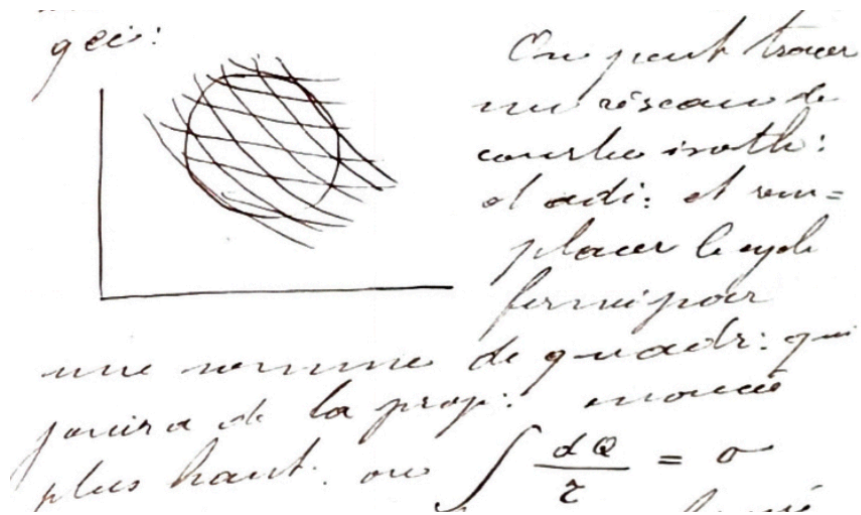 gée:
On peut tracer
un réseau de
courbe isoth:
et adi: et rem=
placer le cycle
fermé par
une somme de quadr: qui
jouira de la prop: énoncée
plus haut. ou ∫ dQ/τ = 0